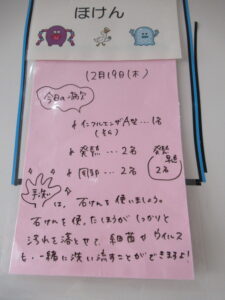 ほけん
12月19日(木)
今日の病欠
インフルエンザA型…1名
発熱…2名
発熱
早退
2名
…2名
手洗い
は、石けんを使いましょう。
石けんを使ったほうがしっかりと
汚れを落とせて、細菌やウイルス
も一緒に洗い流すことができますよ!